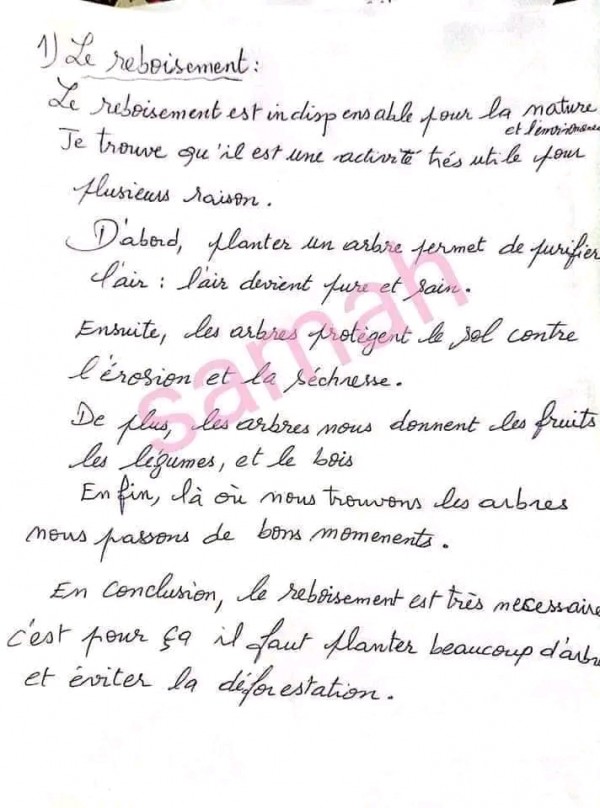 1) Le reboisement :
Le reboisement est indispensable pour la nature
et l'environnement
Je trouve qu'il est une activité trés utile pour
plusieurs raison.
D'abord, planter un arbre permet de purifier
l'air : l'air devient pure et sain.
Ensuite, les arbres protègent le sol contre
l'érosion et la séchresse.
De plus, les arbres nous donnent les fruits
les légumes, et le bois
En fin, là où nous trouvons les arbres
nous passons de bons momenents.
En conclusion, le reboisement est très necessaire
c'est pour ça il faut planter beaucoup d'arbre
et éviter la déforestation.
samah